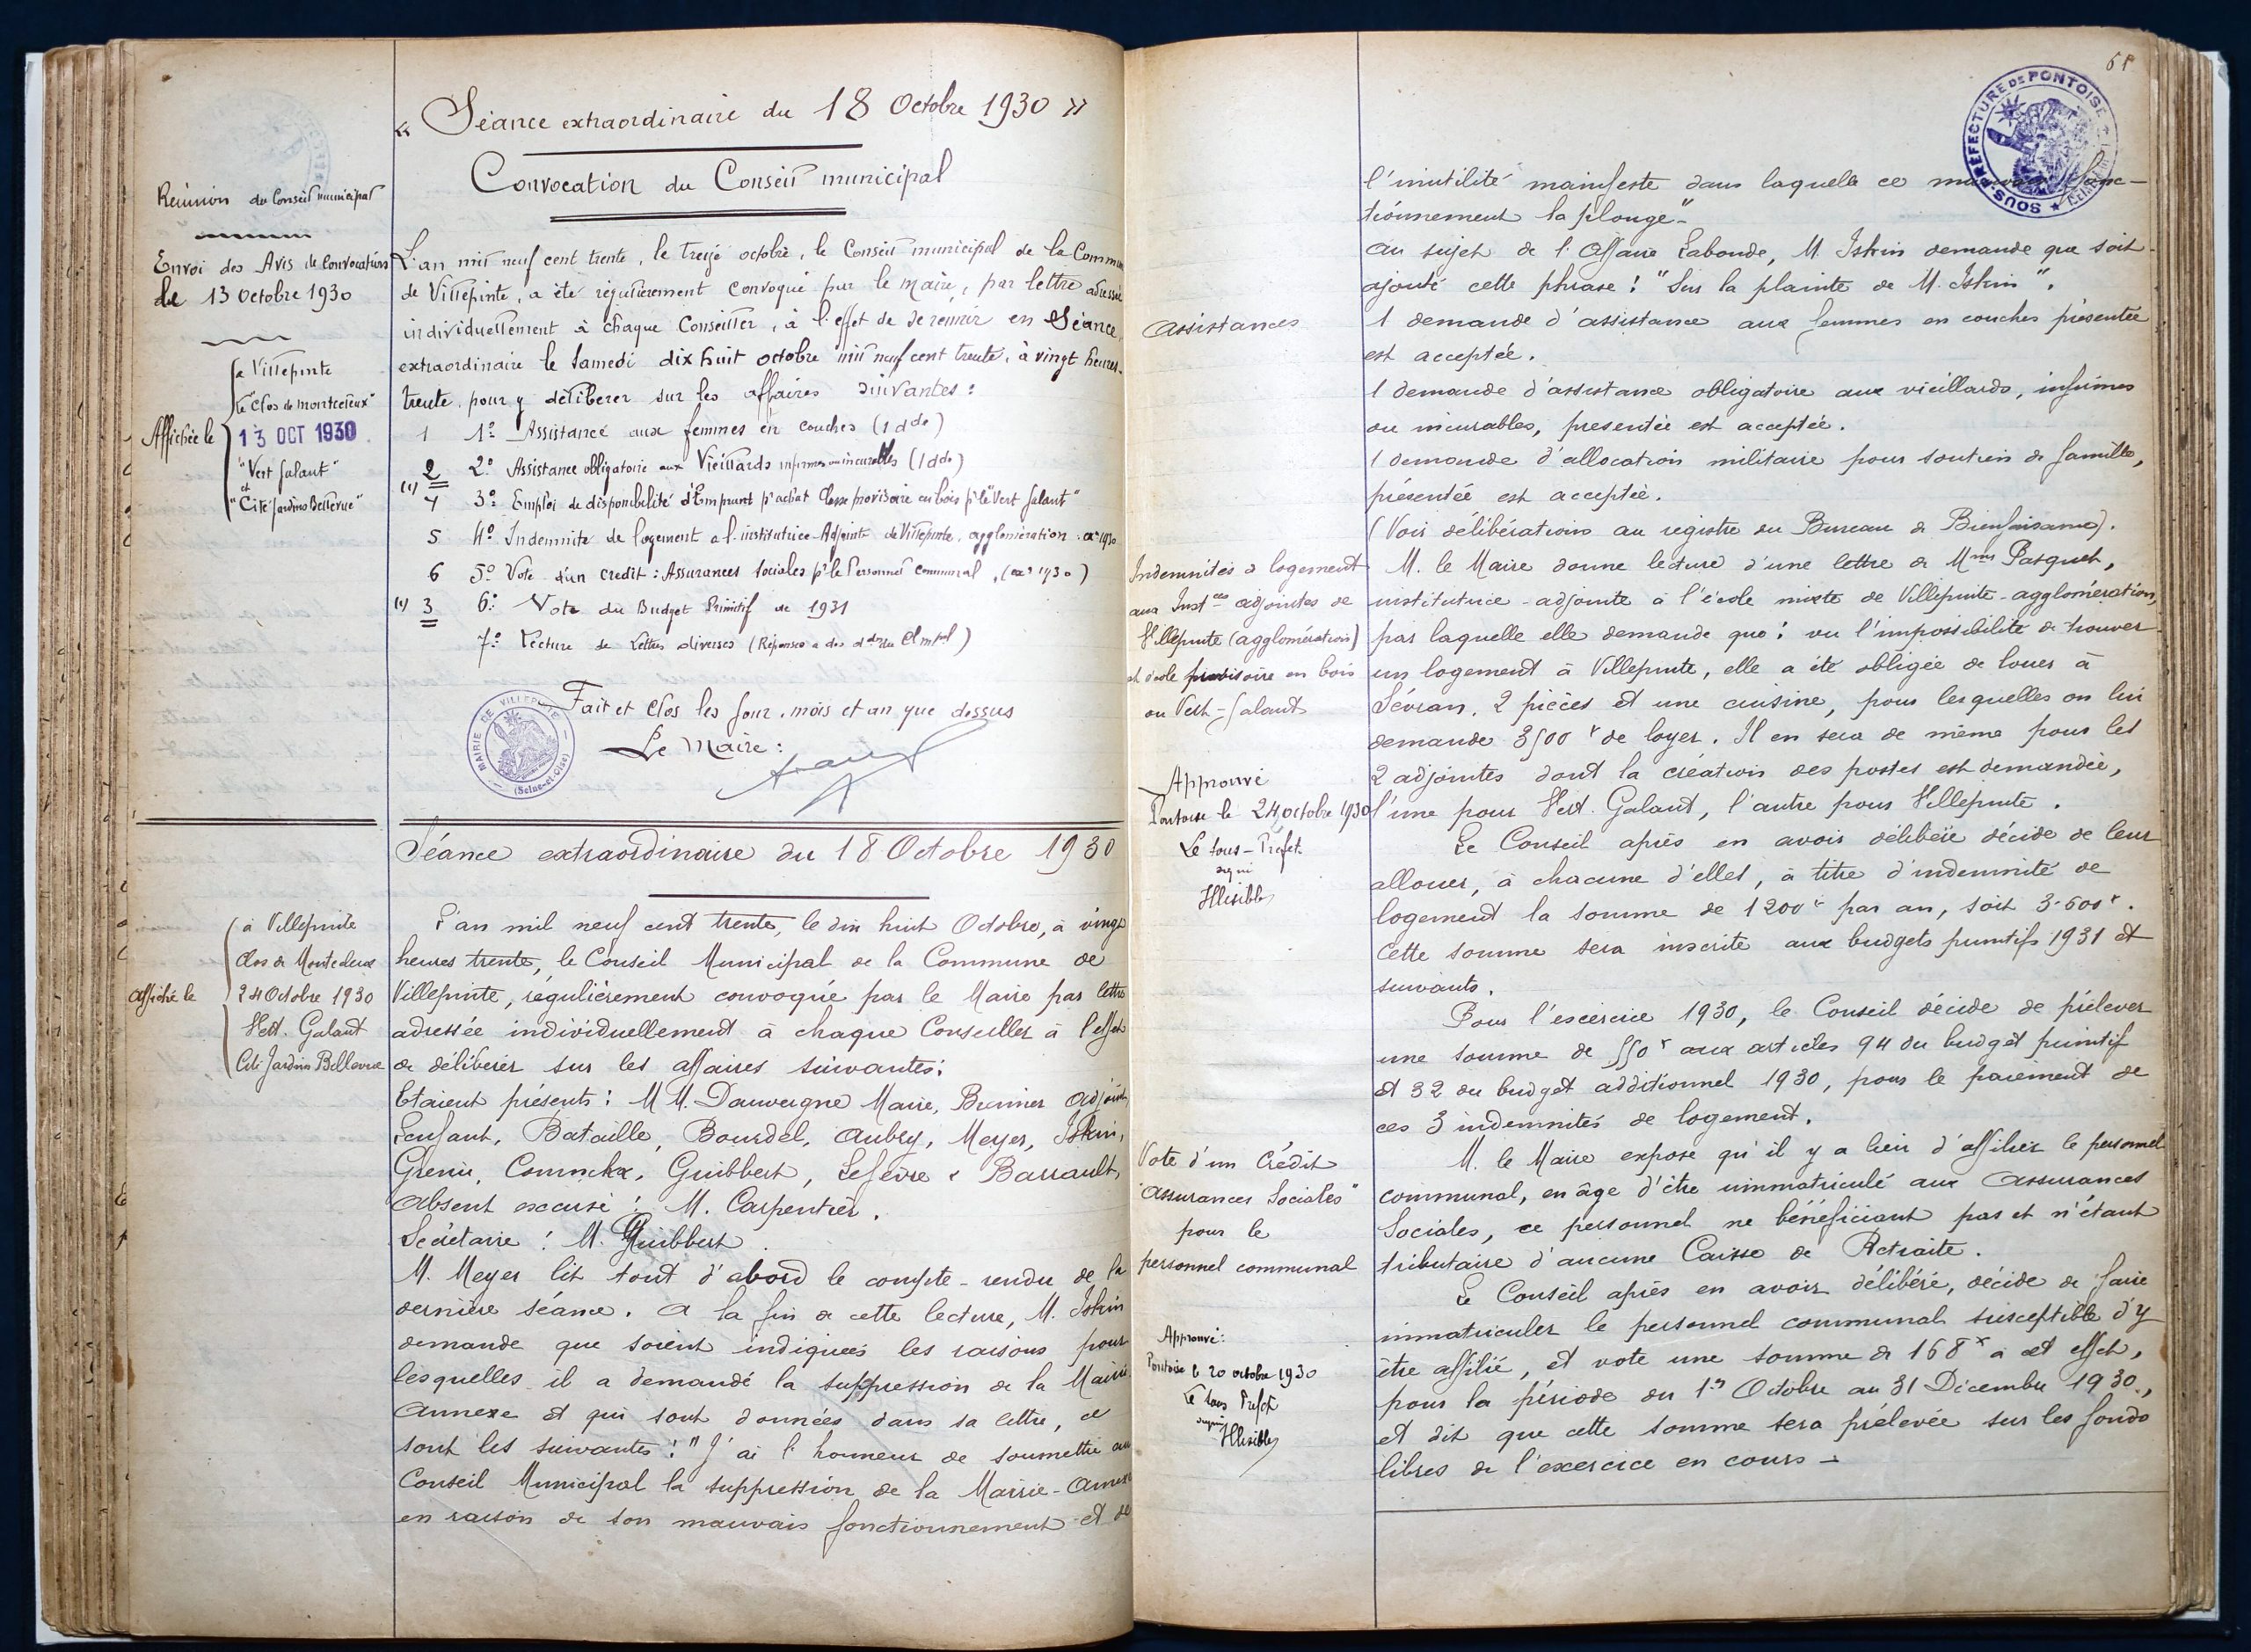 « Séance extraordinaire du 18 Octobre 1930 »
Convocation du Conseil municipal
Réunion du Conseil municipal
Envoi des Avis de Convocation
de 13 Octobre 1930
Affichée le
à Villepinte
"le Clos de montceleux"
13 OCT 1930
"Vert Galant"
et
"Cité Jardins Bellevue"
L'an mil neuf cent trente, le treize octobre, le Conseil municipal de la Commune
de Villepinte, a été régulièrement convoqué par le maire, par lettre adressée
individuellement à chaque Conseiller, à l'effet de se réunir en Séance
extraordinaire le Samedi dix huit octobre mil neuf cent trente, à vingt heures
trente, pour y délibérer sur les affaires suivantes :
1 1º Assistance aux femmes en couches (1 dde)
2 2º Assistance obligatoire aux Vieillards infirmes ou incurables (1 dde)
(1) 4 3º Emploi de disponibilité d'Emprunt pr achat Classe provisoire en bois pr le "Vert Galant"
5 4º Indemnité de logement a l'institutrice-Adjointe de Villepinte, agglomération
6 5º Vote d'un crédit : Assurances Sociales pr le Personnel Communal, (ex 1930)
(1) 3 6º Vote du Budget Primitif de 1931
7º Lecture de Lettres diverses (Réponses a des ddes du Cl mpal)
Fait et Clos les jour, mois et an que dessus
Le Maire :
MAIRIE DE VILLEPINTE
(Seine-et-Oise)
Séance extraordinaire du 18 Octobre 1930
affiché le
à Villepinte
Clos de Montceleux
24 Octobre 1930
Vert. Galant
Cité Jardins Bellevue
L'an mil neuf cent trente, le dix huit Octobre, à vingt
heures trente, le Conseil Municipal de la Commune de
Villepinte, régulièrement convoqué par le Maire par lettre
adressée individuellement à chaque Conseiller à l'effet
de délibérer sur les affaires suivantes :
Etaient présents : M M. Dauvergne Maire, Brunier adjoint,
Lenfant, Bataille, Bourdel, Aubry, Meyer, Iskin,
Grenu, Guibbert, Lefèvre & Barrault,
Absent excusé : M. Carpentier.
Secrétaire : M. Guibbert
M. Meyer lit tout d'abord le compte-rendu de la
dernière séance. A la fin de cette lecture, M. Iskin
demande que soient indiquées les raisons pour
lesquelles il a demandé la suppression de la Mairie
Annexe et qui sont données dans sa lettre, ce
sont les suivantes : "J'ai l'honneur de soumettre au
Conseil Municipal la suppression de la Mairie-Annexe
en raison de son mauvais fonctionnement et de
SOUS-PRÉFECTURE DE PONTOISE
l'inutilité manifeste dans laquelle ce mauvais fonc-
tionnement la plonge"-
Au sujet de l'Affaire Labonde, M. Iskin demande que soit
ajouté cette phrase : "Sur la plainte de M. Iskin".
Assistances
1 demande d'assistance aux femmes en couches présentée
est acceptée.
1 demande d'assistance obligatoire aux vieillards, infirmes
ou incurables, présentée est acceptée.
1 demande d'allocation militaire pour soutien de famille,
présentée est acceptée.
(Voir délibérations au registre du Bureau de Bienfaisance).
Indemnités de logement
aux Instces adjointes de
Villepinte (agglomération)
et école provisoire en bois
au Vert-Galant
M. le Maire donne lecture d'une lettre de Mme Pasquet,
institutrice-adjointe à l'école mixte de Villepinte-agglomération,
par laquelle elle demande que : vu l'impossibilité de trouver
un logement à Villepinte, elle a été obligée de louer à
Sévran, 2 pièces et une cuisine, pour lesquelles on lui
demande 3500 f de loyer. Il en sera de même pour les
2 adjointes dont la création des postes est demandée,
l'une pour Vert. Galant, l'autre pour Villepinte.
Approuvé
Pontoise le 24 octobre 1930
Le Sous-Préfet
signé
Illisible
Le Conseil après en avoir délibéré décide de leur
allouer, à chacune d'elles, à titre d'indemnité de
logement la somme de 1200 f par an, soit 3.600 f.
Cette somme sera inscrite aux budgets primitifs 1931 et
suivants.
Pour l'exercice 1930, le Conseil décide de prélever
une somme de 550 f aux articles 94 du budget primitif
et 32 du budget additionnel 1930, pour le paiement de
ces 3 indemnités de logement.
Vote d'un Crédit
"Assurances Sociales"
pour le
personnel communal
M. le Maire expose qu'il y a lieu d'affilier le personnel
communal, en âge d'être immatriculé aux Assurances
Sociales, ce personnel ne bénéficiant pas et n'étant
tributaire d'aucune Caisse de Retraite.
Approuvé :
Pontoise le 20 octobre 1930
Le Sous Préfet
signé
Illisible
Le Conseil après en avoir délibéré, décide de faire
immatriculer le personnel communal susceptible d'y
être affilié, et vote une somme de 168 f à cet effet,
pour la période du 1er Octobre au 31 Décembre 1930,
et dit que cette somme sera prélevée sur les fonds
libres de l'exercice en cours -